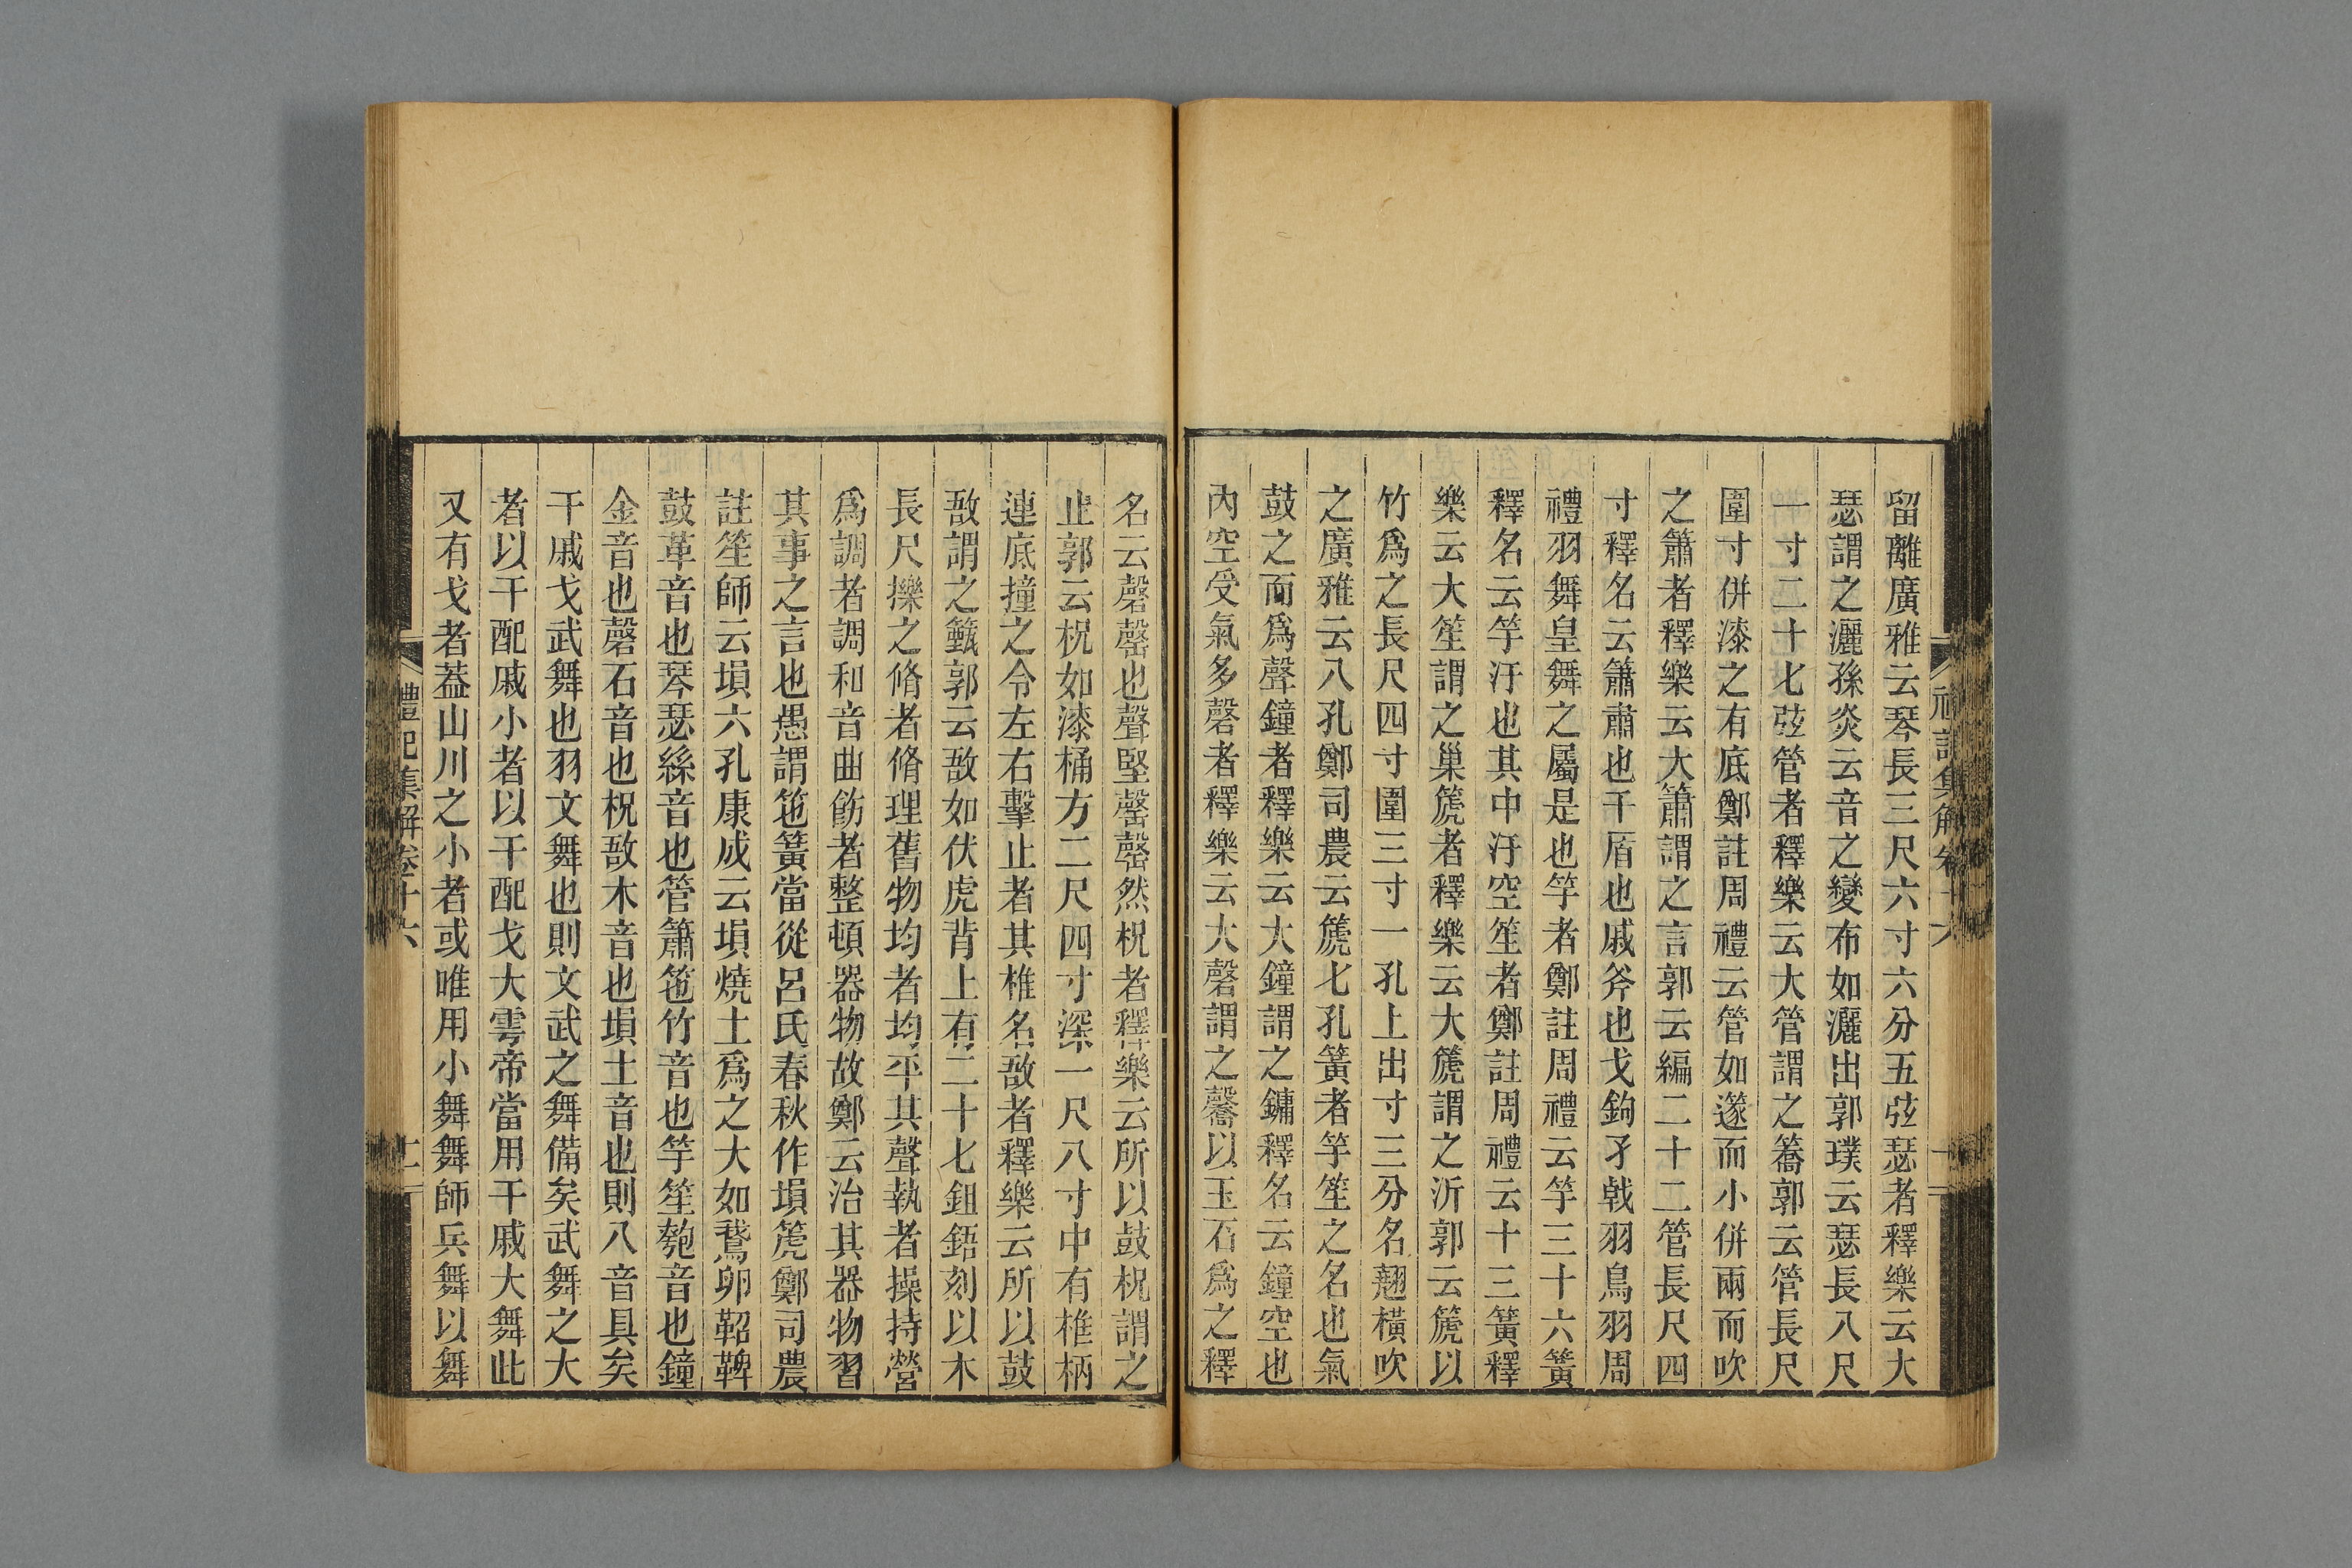 留離廣雅云琴長三尺六寸六分五弦瑟者釋樂云大
瑟謂之灑孫炎云音之變布如灑出郭璞云瑟長八尺
一寸二十七弦管者釋樂云大管謂之簥郭云管長尺
圍寸併漆之有底鄭註周禮云管如篴而小併兩而吹
之簫者釋樂云大簫謂之言郭云編二十二管長尺四
寸釋名云簫肅也干盾也戚斧也戈鉤矛戟羽鳥羽周
禮羽舞皇舞之屬是也竽者鄭註周禮云竽三十六簧
釋名云竽汙也其中汙空笙者鄭註周禮云十三簧釋
樂云大笙謂之巢篪者釋樂云大篪謂之沂郭云篪以
竹爲之長尺四寸圍三寸一孔上出寸三分名翹橫吹
之廣雅云八孔鄭司農云篪七孔簧者竽笙之名也氣
鼓之而爲聲鐘者釋樂云大鐘謂之鏞釋名云鐘空也
內空受氣多磬者釋樂云大磬謂之毊以玉石爲之釋
名云磬罄也聲堅罄罄然柷者釋樂云所以鼓柷謂之
止郭云柷如漆桶方二尺四寸深一尺八寸中有椎柄
連底撞之令左右擊止者其椎名敔者釋樂云所以鼓
敔謂之籈郭云敔如伏虎背上有二十七鉏鋙刻以木
長尺擽之脩者脩理舊物均者均平其聲執者操持營
爲調者調和音曲飭者整頓器物故鄭云治其器物習
其事之言也愚謂笹簧當從呂氏春秋作塤篪鄭司農
註笙師云塤六孔康成云塤燒土爲之大如鵞卵鞀鞞
鼓革音也琴瑟絲音也管簫笹竹音也竽笙匏音也鐘
金音也磬石音也柷敔木音也塤土音也則八音具矣
干戚戈武舞也羽文舞也則文武之舞備矣武舞之大
者以干配戚小者以干配戈大雩帝當用干戚大舞此
又有戈者葢山川之小者或唯用小舞舞師兵舞以舞
禮記集解卷十六